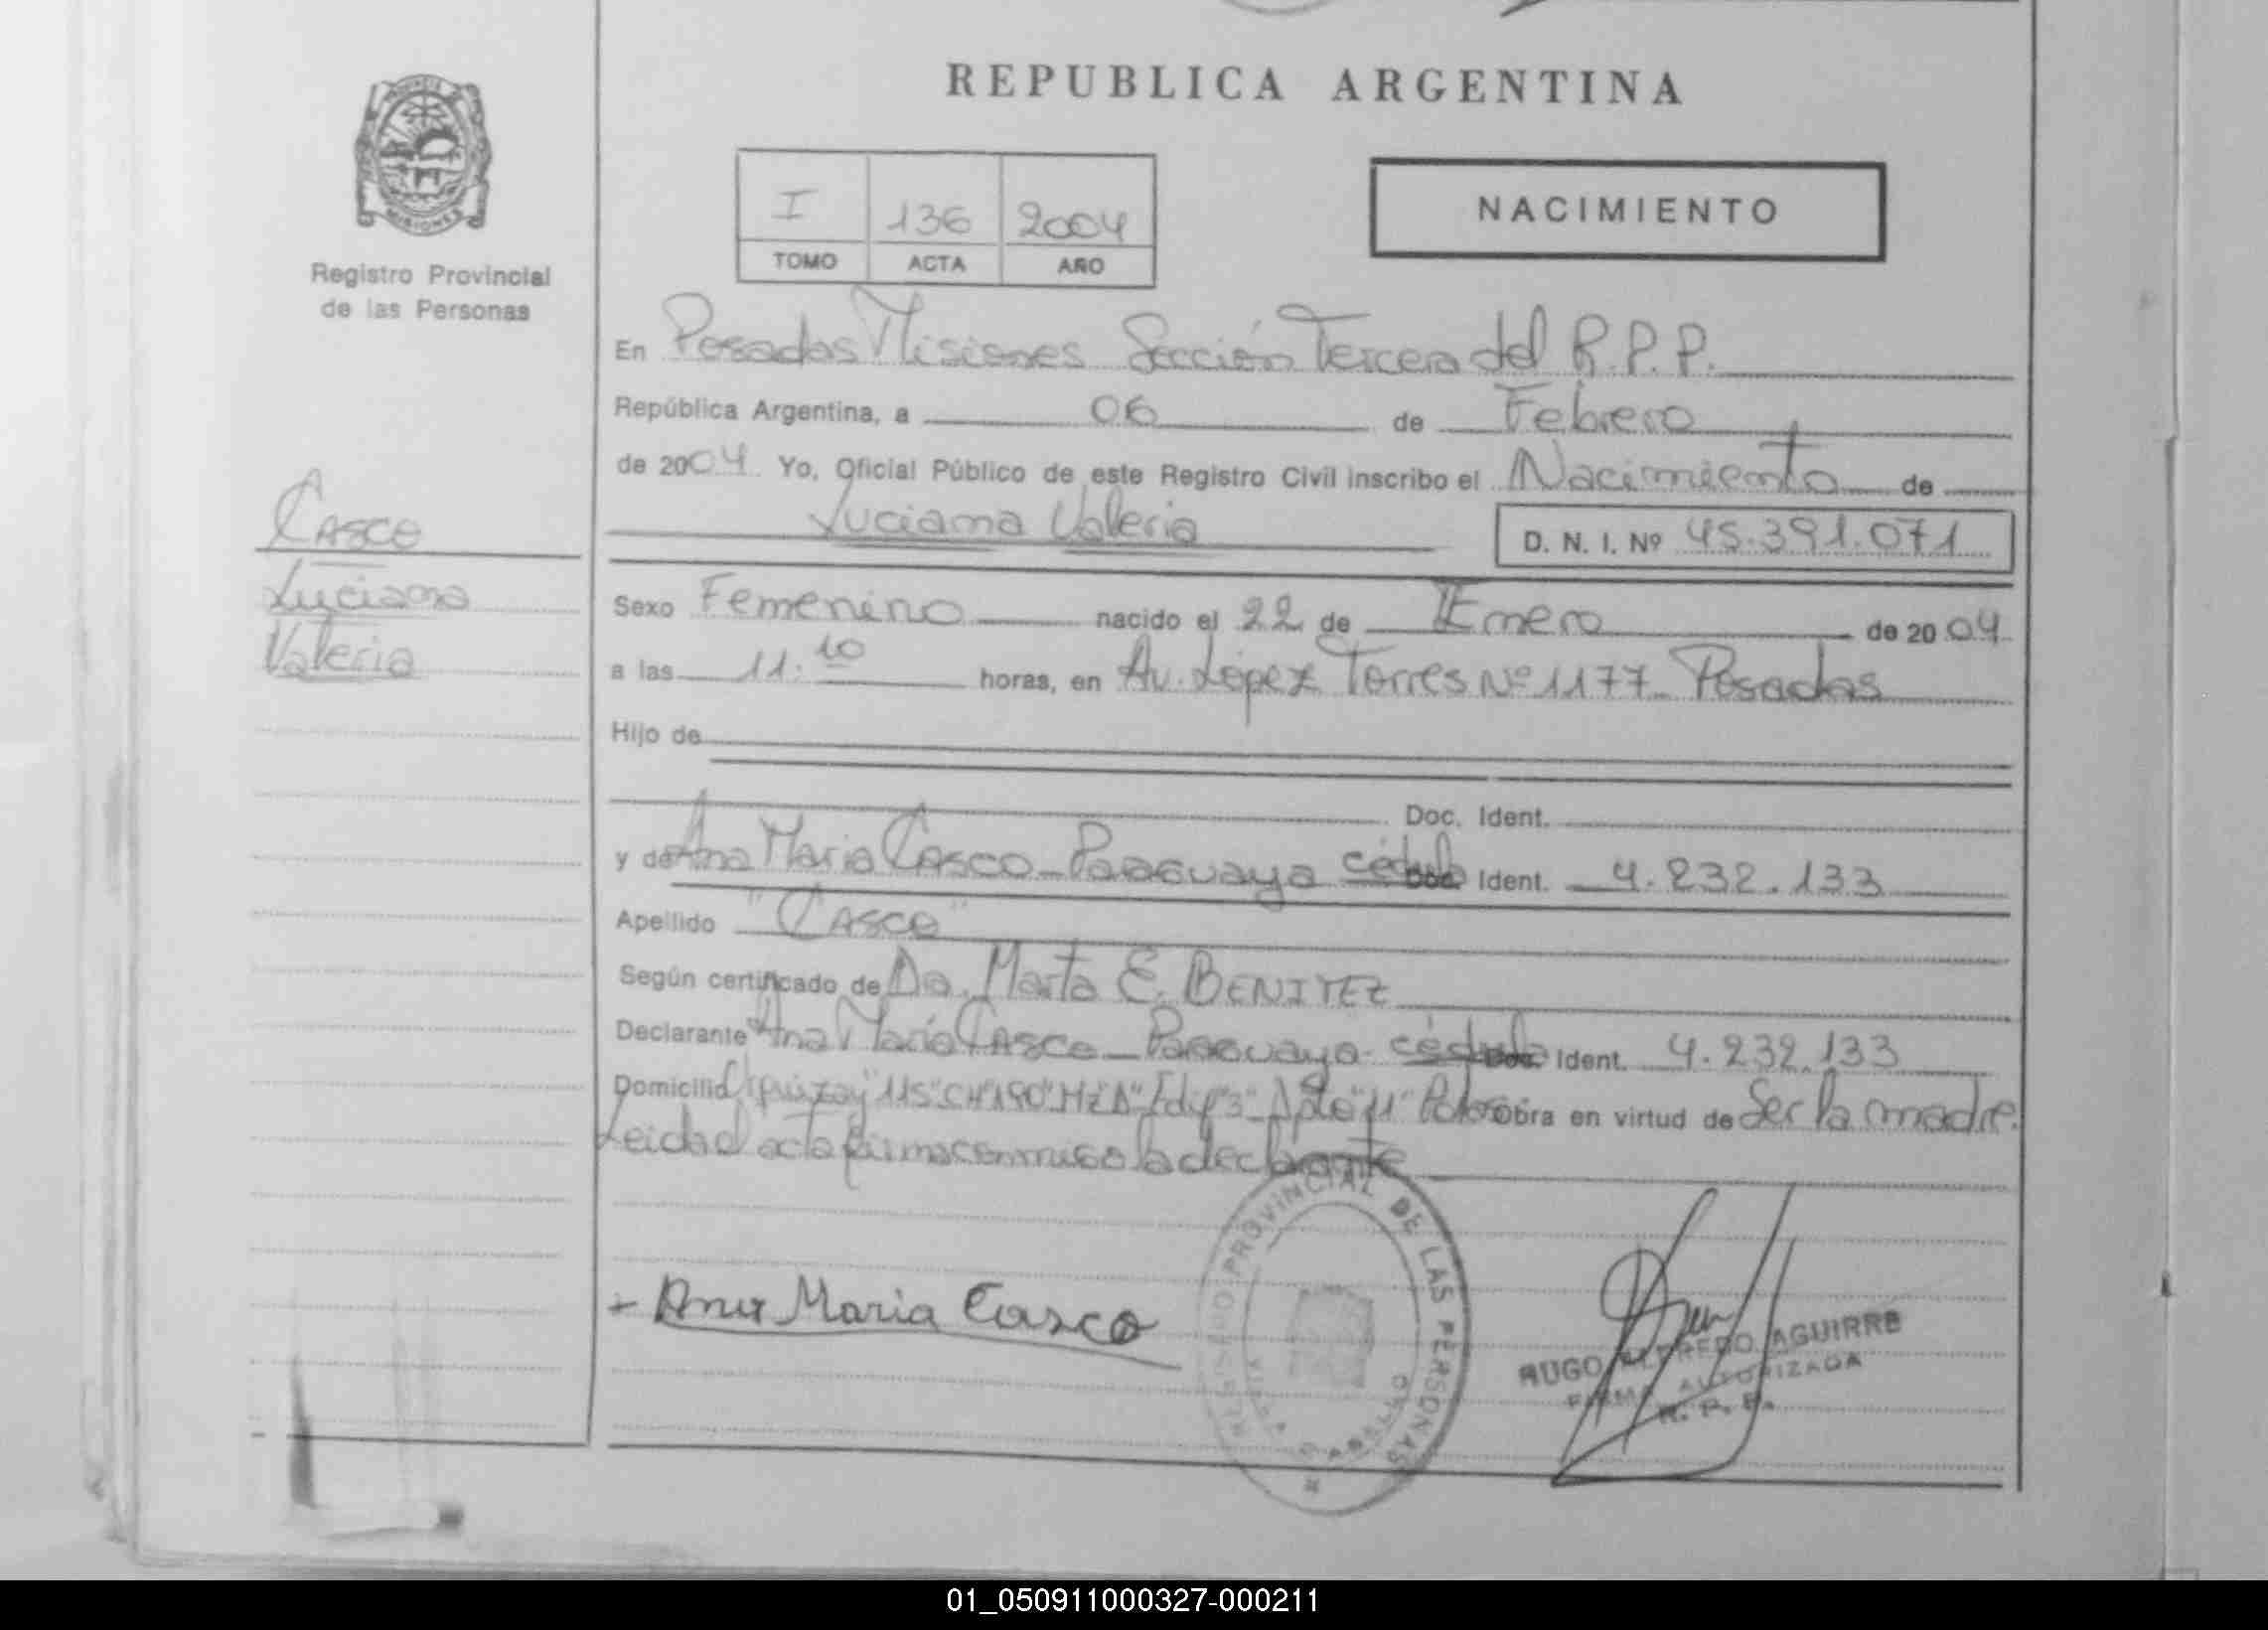 REPUBLICA ARGENTINA
MISIONES
Registro Provincial
de las Personas
I 136 2004
TOMO ACTA AÑO
NACIMIENTO
En Posadas Misiones Sección Tercera del R.P.P.
República Argentina, a 06 de Febrero
de 2004 Yo, Oficial Público de este Registro Civil inscribo el Nacimiento de
Luciana Valeria D. N. I. Nº 45.391.071
CASCO
Luciana
Valeria
Sexo Femenino nacido el 22 de Enero de 2004
a las 11.10 horas, en Av. López Torres Nº 1177 Posadas
Hijo de
Doc. Ident.
y de Ana Maria CASCO - Paraguaya cédula Ident. 4.232.133
Apellido "CASCO"
Según certificado de Dra. Marta E. BENITEZ
Declarante Ana María CASCO - Paraguaya cédula Ident. 4.232.133
Domicilio "115" "CH"190" Edif"3" Dpto"11" obra en virtud de Ser la madre.
Leida el acta firma conmigo la declarante
REGISTRO PROVINCIAL DE LAS PERSONAS
Ana Maria Casco
HUGO ALFREDO AGUIRRE
FIRMA AUTORIZADA
R. P. P.
01_050911000327-000211